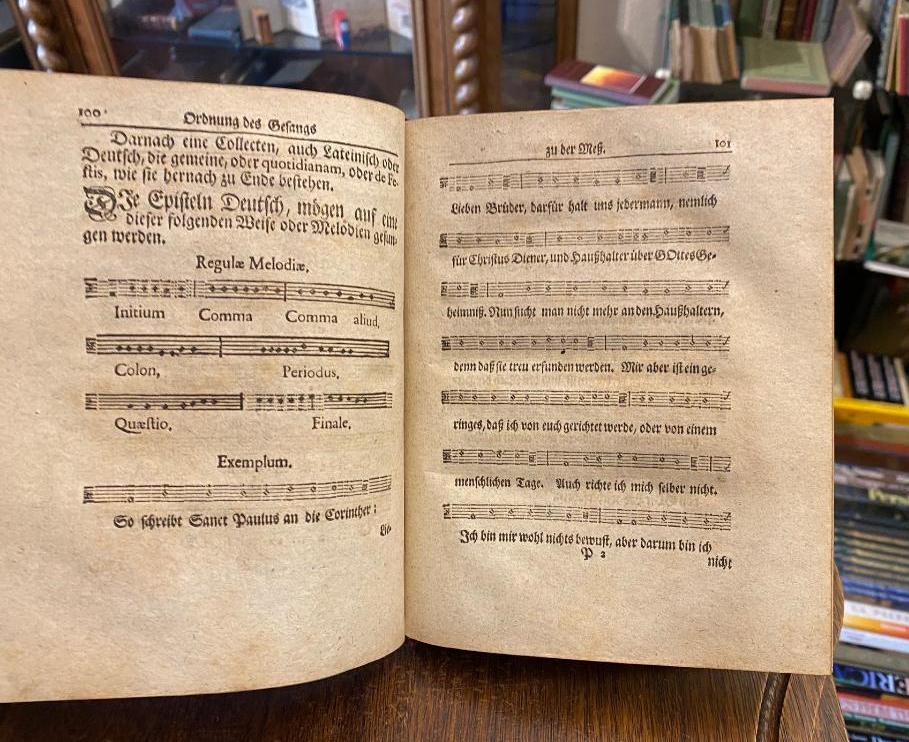 100
Ordnung des Gesangs
Darnach eine Collecten, auch Lateinisch oder
Deutsch, die gemeine, oder quotidianam, oder de Fe-
stis, wie sie hernach zu Ende bestehen.
DIe Episteln Deutsch, mögen auf eine
dieser folgenden Weise oder Melodien gesun-
gen werden.
Regulæ Melodiæ,
Initium Comma Comma aliud,
Colon, Periodus,
Quæstio, Finale,
Exemplum.
So schreibt Sanct Paulus an die Corinther:
Lie-
zu der Meß.
101
Lieben Brüder, darfür halt uns jedermann, nemlich
für Christus Diener, und Haußhalter über GOttes Ge-
heimniß. Nun sucht man nicht mehr an den Haußhaltern,
denn daß sie treu erfunden werden. Mir aber ist ein ge-
ringes, daß ich von euch gerichtet werde, oder von einem
menschlichen Tage. Auch richte ich mich selber nicht.
Ich bin mir wohl nichts bewust, aber darum bin ich
P 2
nicht